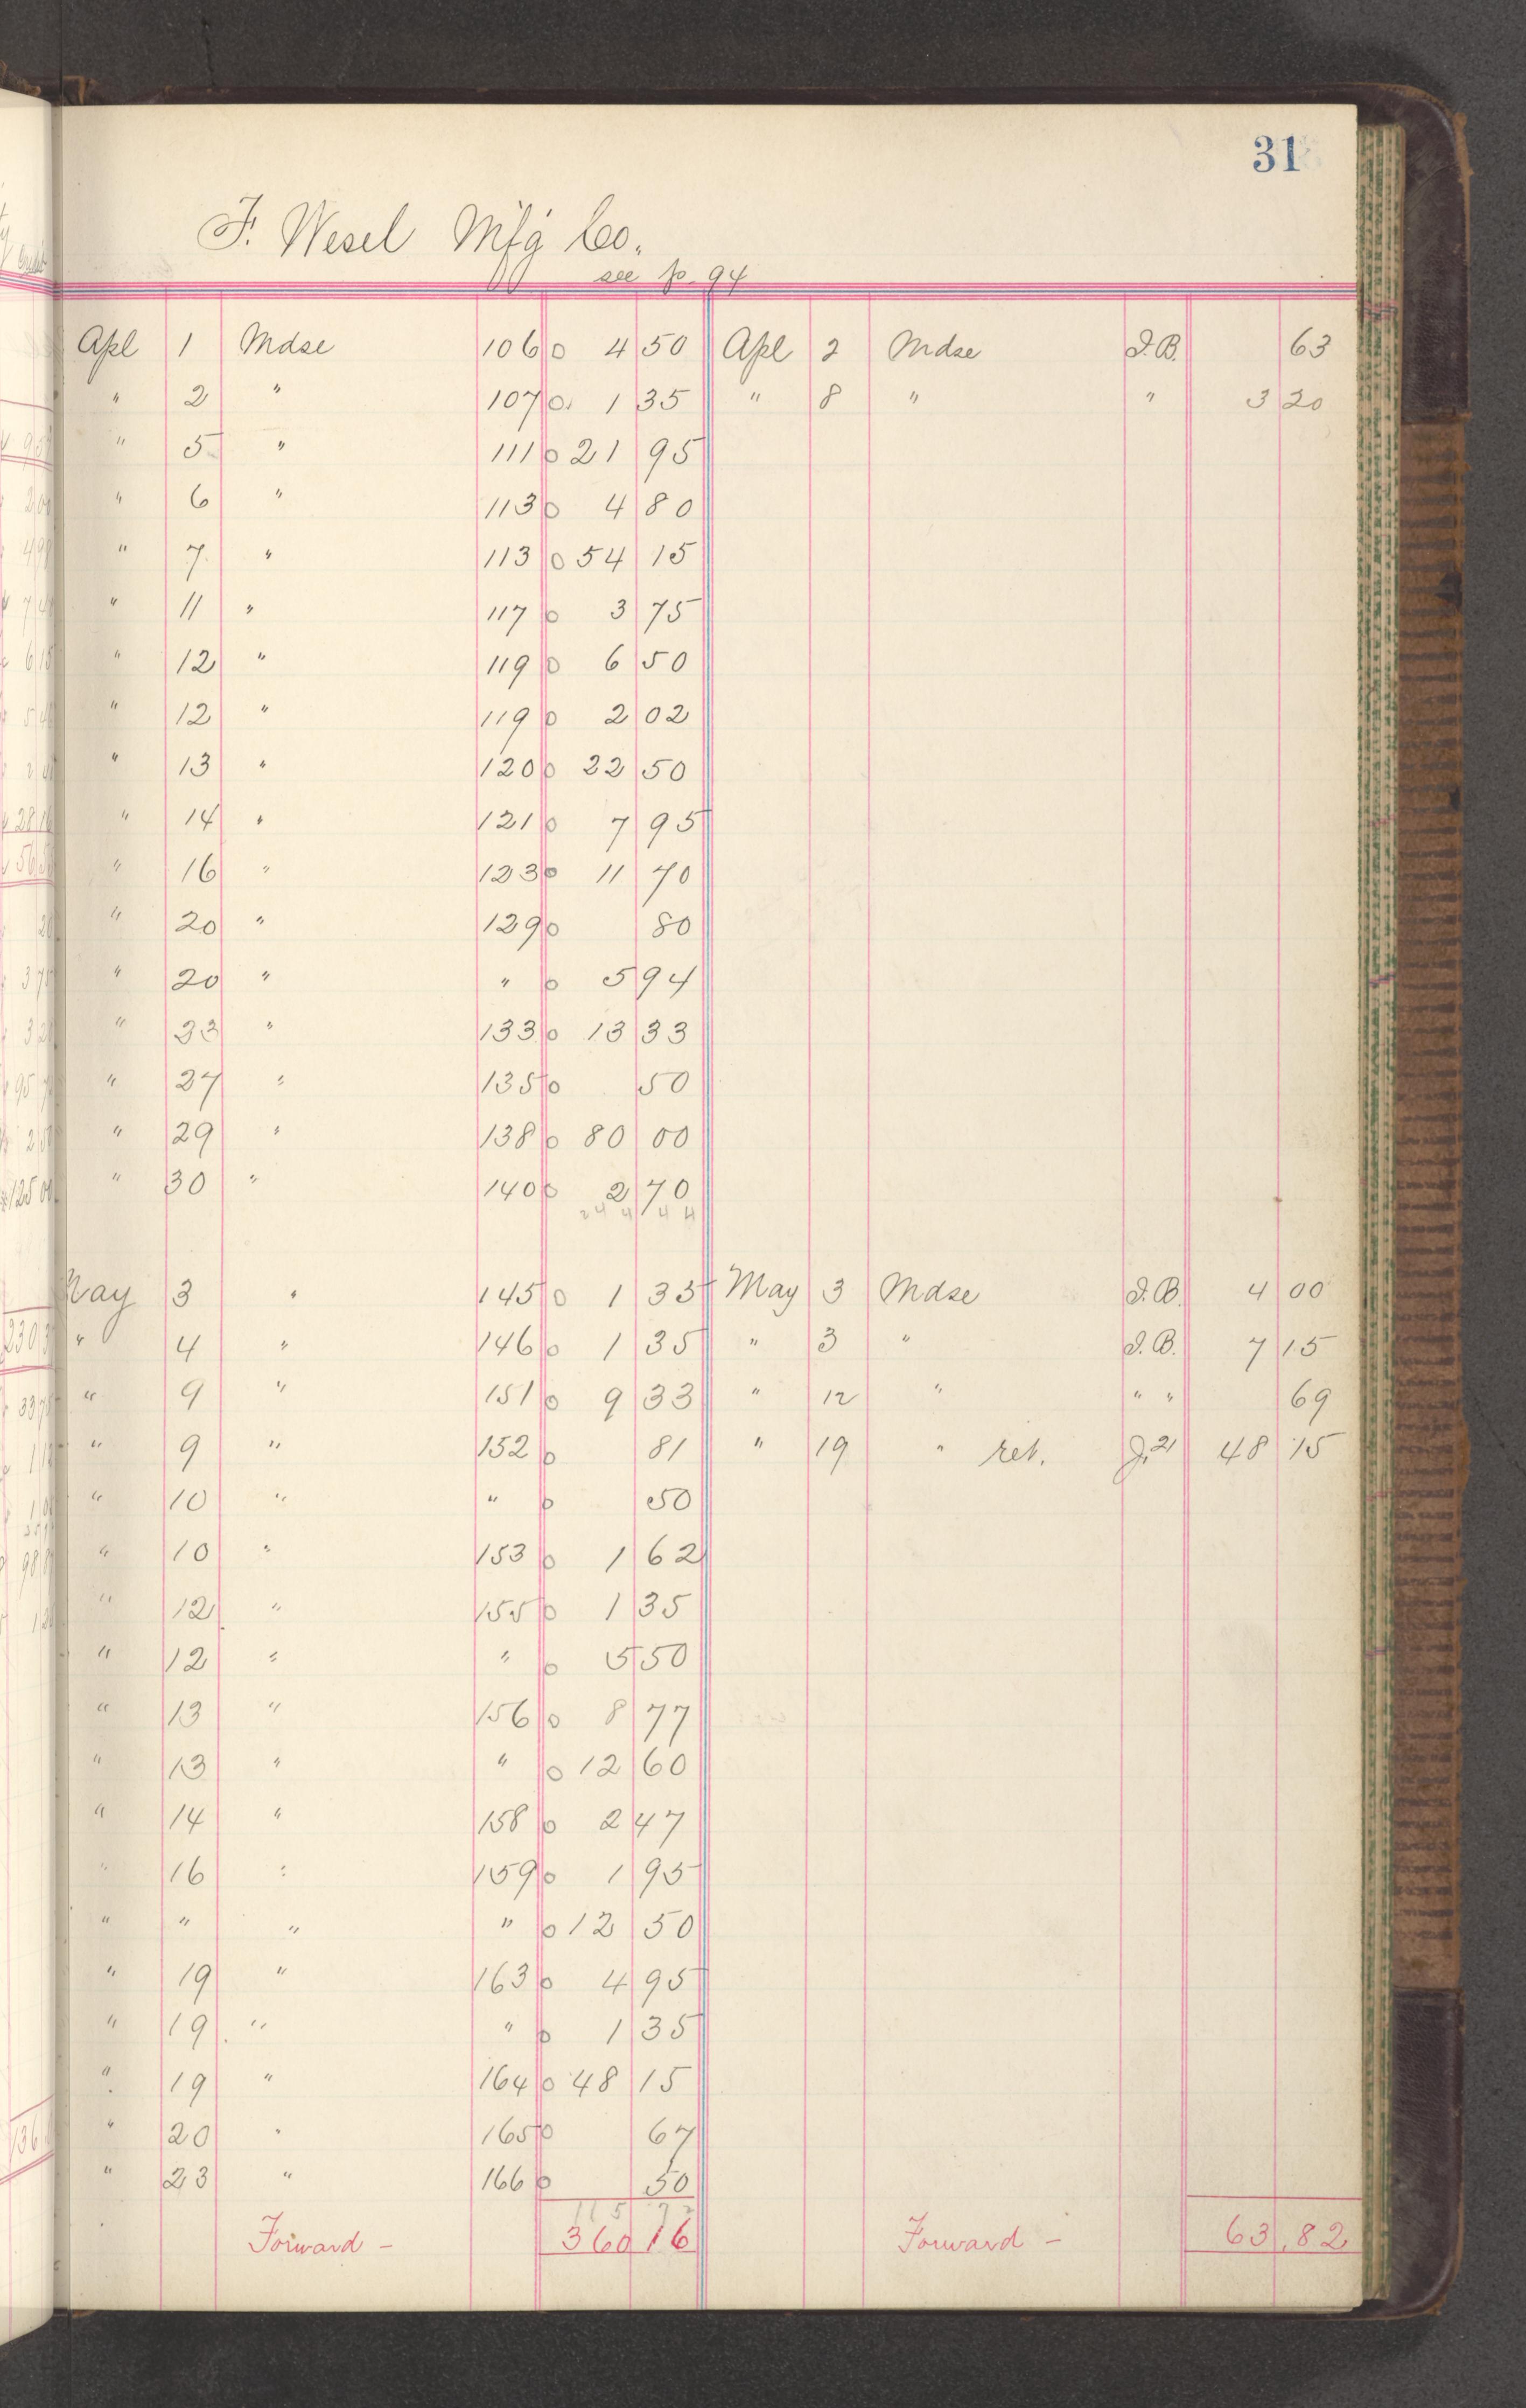 31
F. Wesel Mfg Co.
see p. 94
Apl 1 Mdse 106 o 4 50 Apl 2 Mdse I.B. 63
" 2 " 107 o 1 35 " 8 " " 3 20
" 5 " 111 o 21 95
" 6 " 113 o 4 80
" 7 " 113 o 54 15
" 11 " 117 o 3 75
" 12 " 119 o 6 50
" 12 " 119 o 2 02
" 13 " 120 o 22 50
" 14 " 121 o 7 95
" 16 " 123 o 11 70
" 20 " 129 o 80
" 20 " " o 5 94
" 23 " 133 o 13 33
" 27 " 135 o 50
" 29 " 138 o 80 00
" 30 " 140 o 2 70
244 44
May 3 " 145 o 1 35 May 3 Mdse I.B. 4 00
" 4 " 146 o 1 35 " 3 " I.B. 7 15
" 9 " 151 o 9 33 " 12 " " " 69
" 9 " 152 o 81 " 19 " ret. J. 21 48 15
" 10 " " o 50
" 10 " 153 o 1 62
" 12 " 155 o 1 35
" 12 " " o 5 50
" 13 " 156 o 8 77
" 13 " " o 12 60
" 14 " 158 o 2 47
" 16 " 159 o 1 95
" " " " o 12 50
" 19 " 163 o 4 95
" 19 " " o 1 35
" 19 " 164 o 48 15
" 20 " 165 o 67
" 23 " 166 o 50
115 72
Forward - 360 16 Forward - 63.82